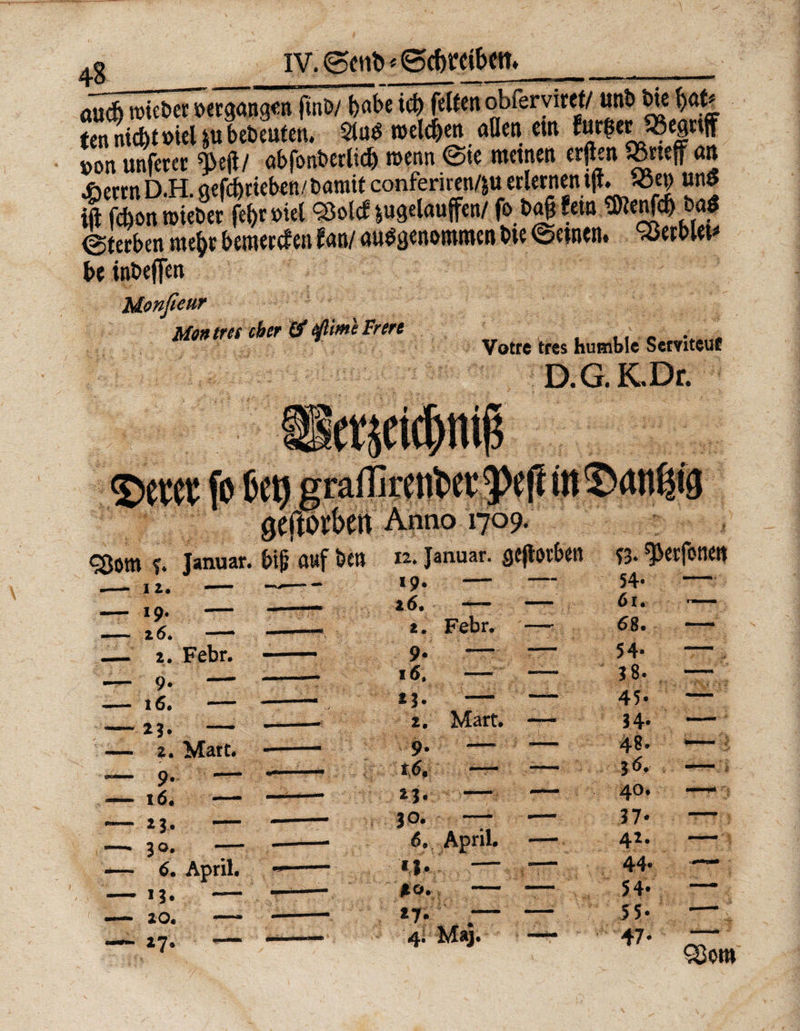 48 IV. Send-Schreiben.
auch wieder vergangen sind/ habe ich selten observiret/ und die hat-
ten nicht viel zu bedeuten. Aus welchen allen ein kurtzer Begriff
von unserer Pest/ absonderlich wenn Sie meinen ersten Brieff an
Herrn D.H. geschrieben/ damit conferiren/ zu erlernen ist. Bey uns
ist schon wieder sehr viel Volck zugelauffen/ so daß kein Mensch das
Sterben mehr bemercken kan/ ausgenommen die Seinen. Verblei-
be indessen
Monsieur
Mon tres cher & estimé Frere
Votre tres humble Serviteur
D.G.K.Dr.
Verzeichniß
Derer so bey grassirender Pest in Dantzig
gestorben Anno 1709.
Vom 5. Januar. biß auf den 12. Januar. gestorben 53. Personen
— 12. — —— 19. — — 54. —
— 19. — —— 26. — — 61. —
— 26. — —— 2. Febr. — 68. —
— 2. Febr. —— 9. — — 54. —
— 9. — —— 16. — — 38. —
— 16. — —— 23. — — 45. —
— 23. — —— 2. Mart. — 34. —
— 2. Mart. —— 9. — — 48. —
— 9. — —— 16. — — 36. —
— 16. — —— 23. — — 40. —
— 23. — —— 30. — — 37. —
— 30. — —— 6. April. — 42. —
— 6. April. —— 13. — — 44. —
— 13. — —— 20. — — 54. —
— 20. — —— 27. — — 55. —
— 27. — —— 4. Maj. — 47. —
Vom